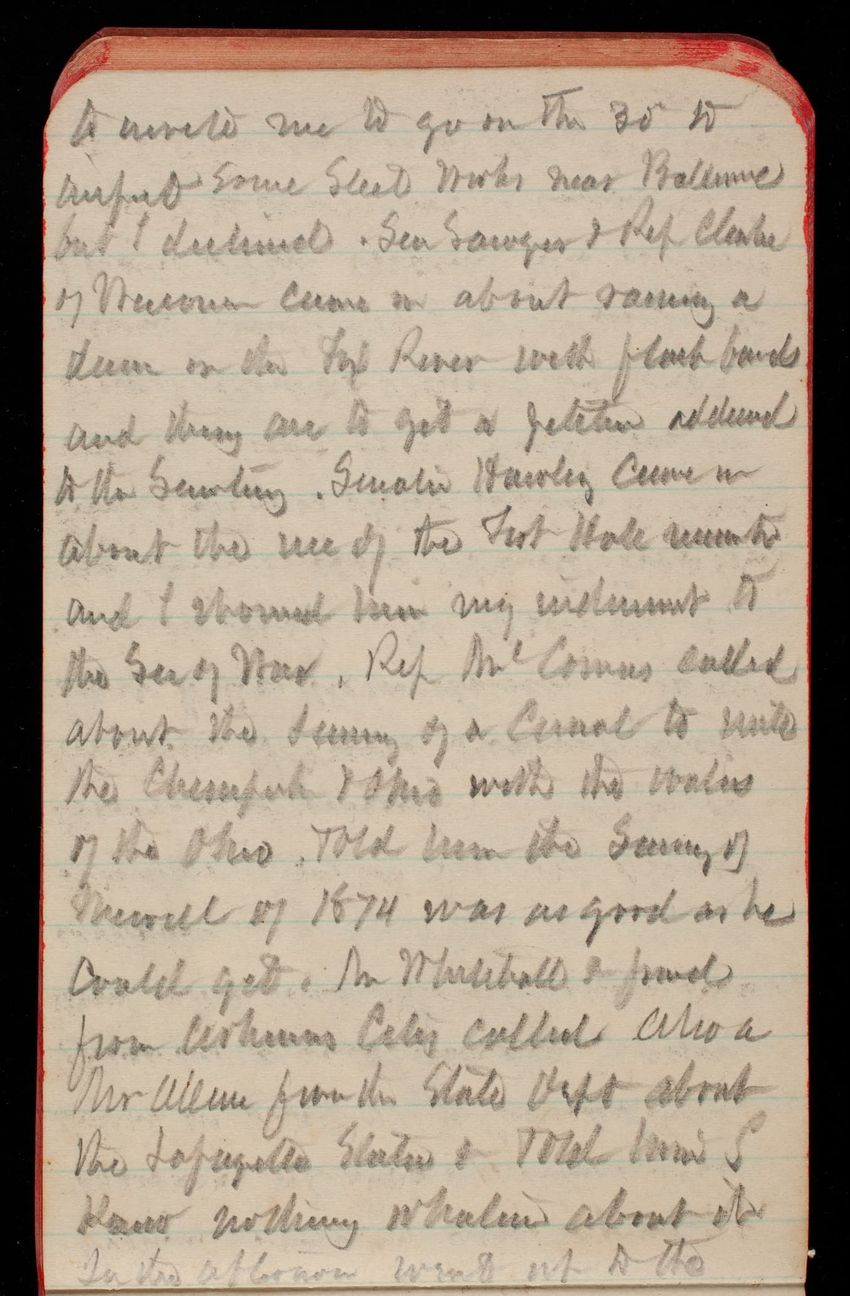 to invite me to go on the 30 to
inspect Some Steel Works near Baltimore
but I declined. Sen Sawyer & Rep Clarke
of Wisconsin came in about raising a
dam on the Fox River with flash boards
and they are to get a petition addressed
to the Secretary. Senator Hawley came in
about the use of the Fort Hale
and I showed him my indorsement to
the Sec of War. Rep McComas called
about the Survey of a Canal to unite
the Chesapeake & Ohio with the waters
of the Ohio. Told him the Survey of
Merrill of 1874 was as good as he
could get. Mr Whitehall & friend
from Arkansas City called Also a
Mr from the State Dept about
the Lafayette Statue & Told him I
Knew nothing whatever about it
In the afternoon went up to the